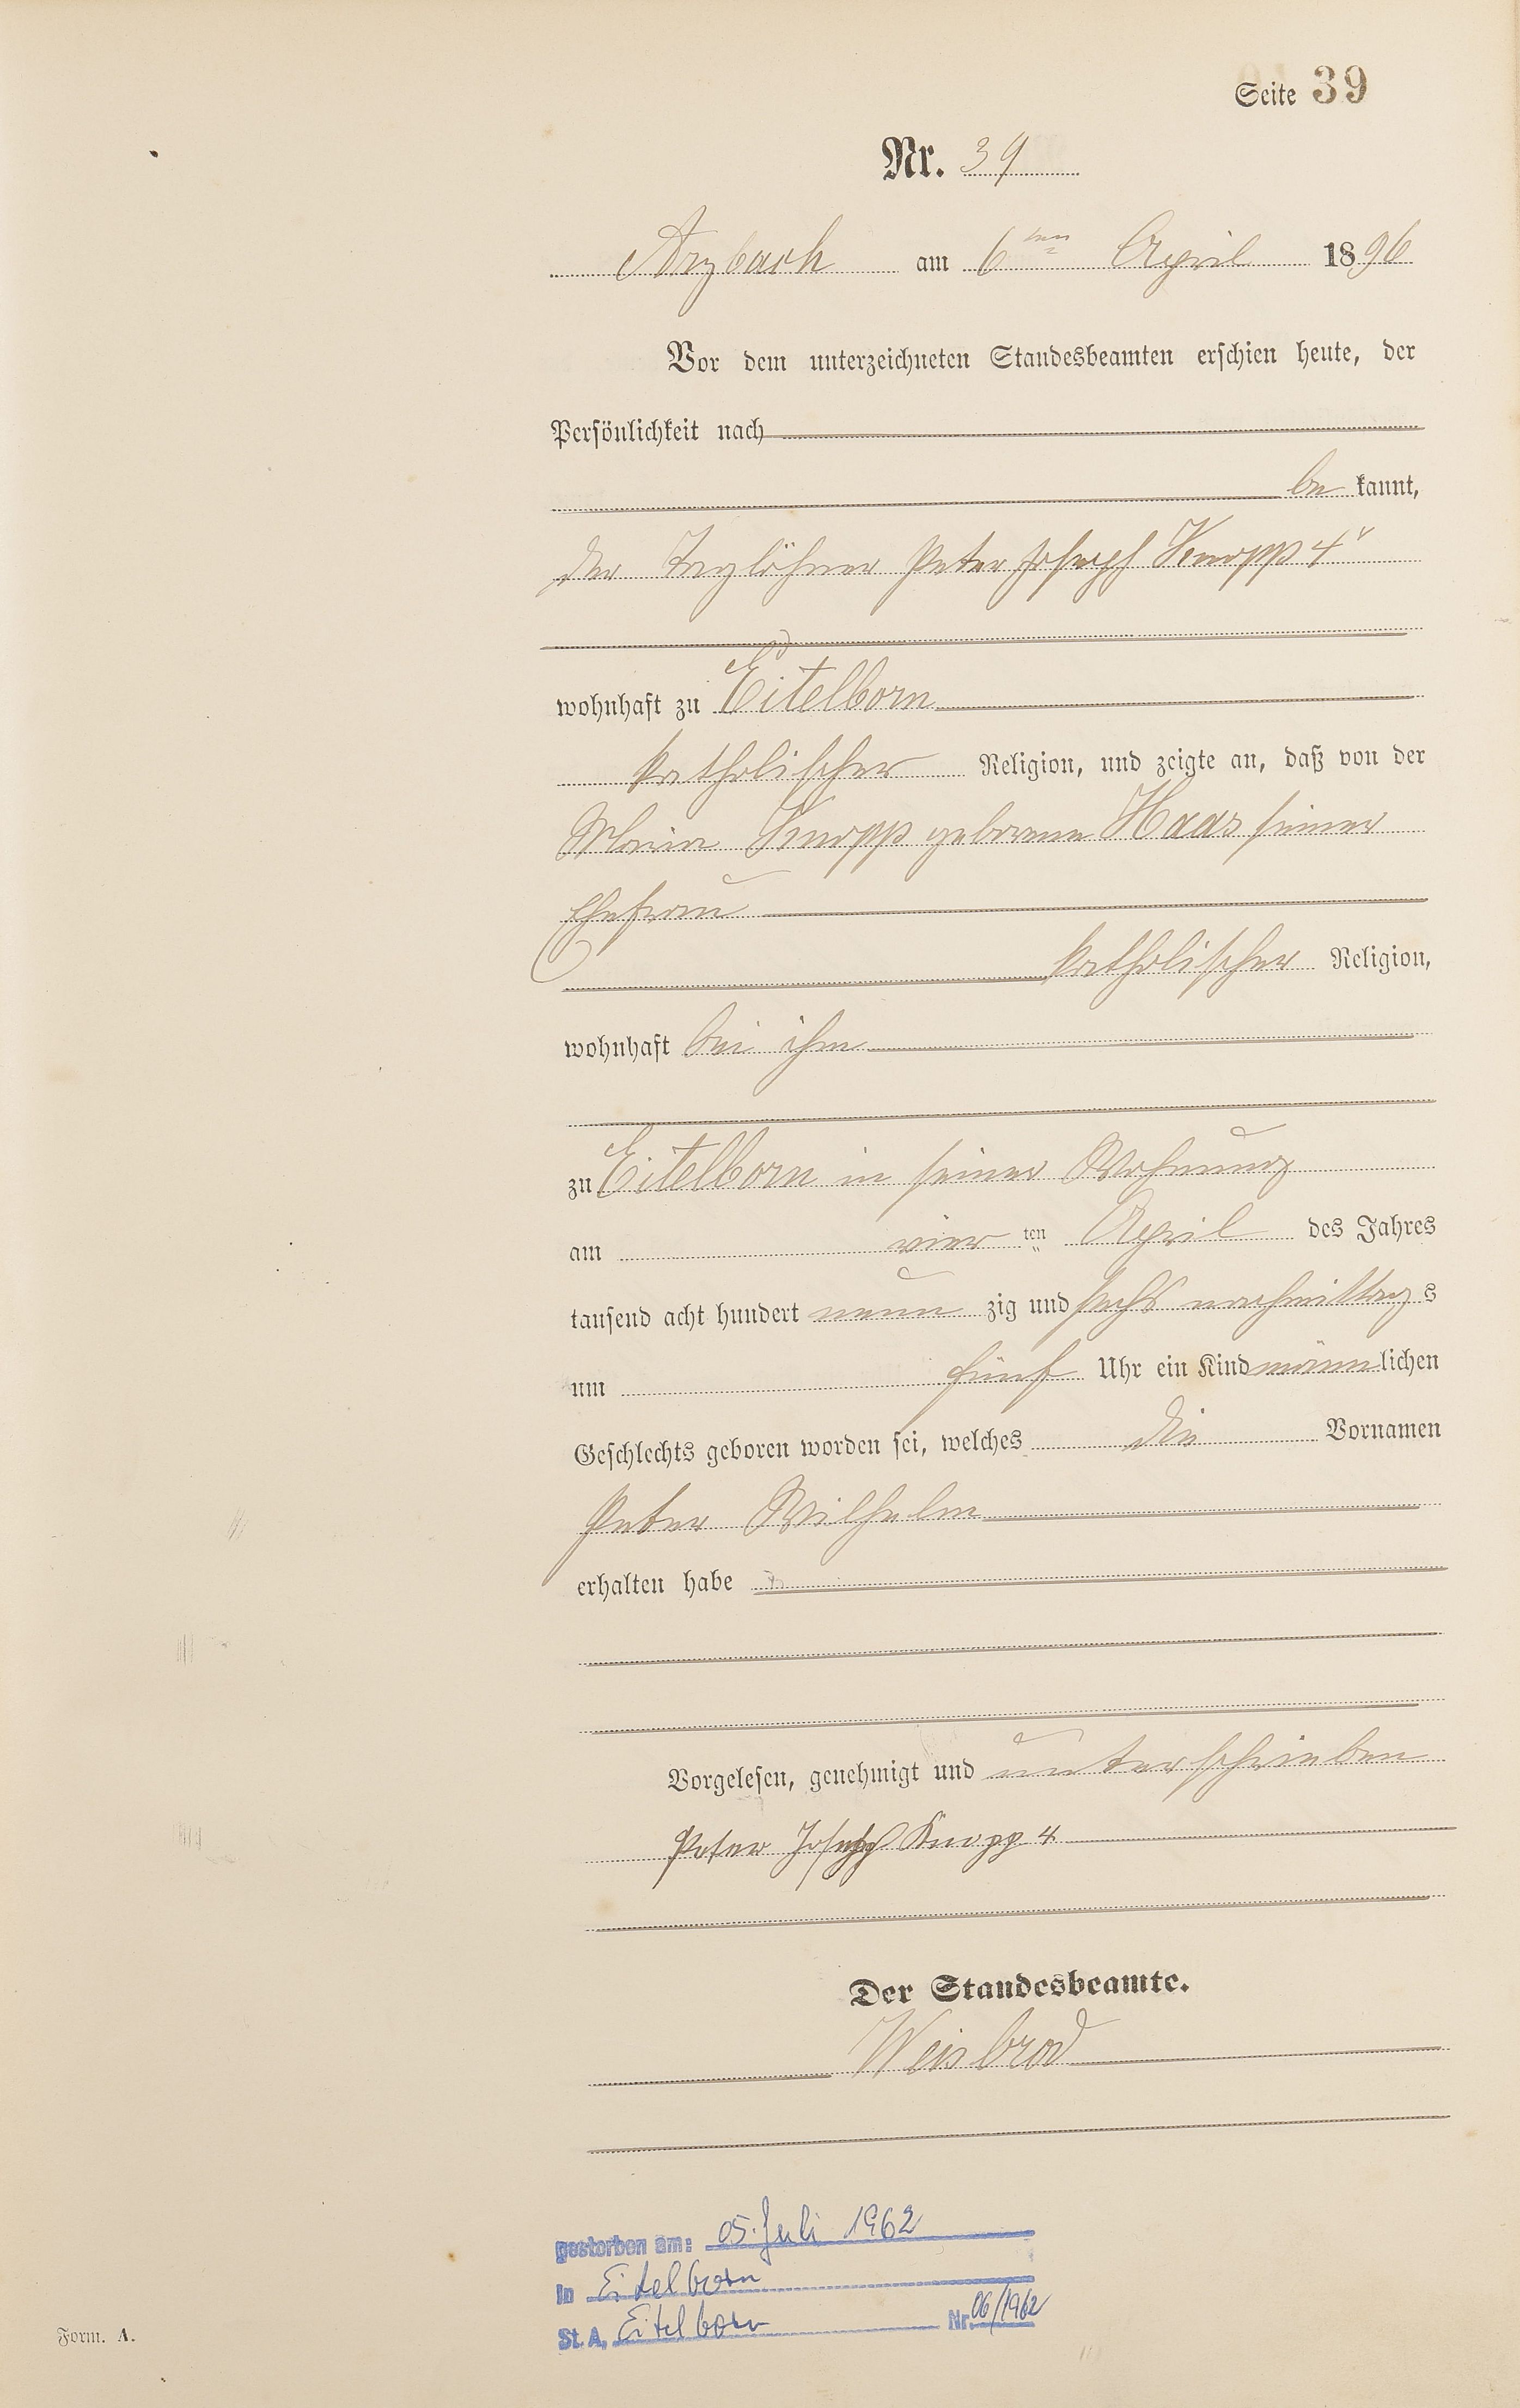 Seite 39
Nr. 39
Arzbach am 6ten April 1896
Vor dem unterzeichneten Standesbeamten erschien heute, der
Persönlichkeit nach
be kannt,
der Taglöhner Peter Joseph Knopp 4r
wohnhaft zu Eitelborn
katholischer Religion, und zeigte an, daß von der
Maria Knopp geborene Haas seiner
Ehefrau
katholischer Religion,
wohnhaft bei ihm
zu Eitelborn in seiner Wohnung
am vier ten April des Jahres
tausend acht hundert neun zig und sechs nachmittag s
um fünf Uhr ein Kind männ lichen
Geschlechts geboren worden sei, welches die Vornamen
Peter Wilhelm
erhalten habe
Vorgelesen, genehmigt und unterschrieben
Peter Joseph Knopp 4
Der Standesbeamte.
Weisbrod
gestorben am: 05. Juli 1962
in Eitelborn
St. A. Eitelborn Nr. 06/1962
Form. A.